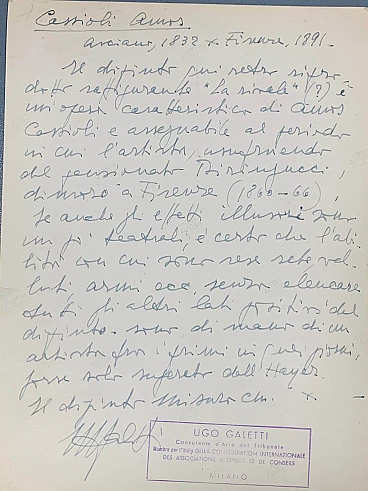 Cassioli Amos
Asciano, 1832 x Firenze, 1891.
Il dipinto qui retro ripro-
dotto raffigurante "La rivale" (?) è
un'opera caratteristica di Amos
Cassioli e assegnabile al periodo
in cui l'artista, usufruendo
del pensionato Biringucci,
dimorò a Firenze (1860-66).
Se anche gli effetti illusivi sono
un pò teatrali, è certo che l'abi-
lità con cui sono rese sete vel-
luti armi ecc. senza elencare
tutti gli altri lati positivi del
dipinto - sono di mano di un
artista fra i primi in quei giorni,
forse solo superato dall'Hayez
Il dipinto misura cm. x
UGO GALETTI
Consulente d'Arte del Tribunale
Membro per l'Italy DELLA CONFEDERATION INTERNATIONALE
DES ASSOCIATIONS D'EXPERTS ET DE CONSEILS
MILANO